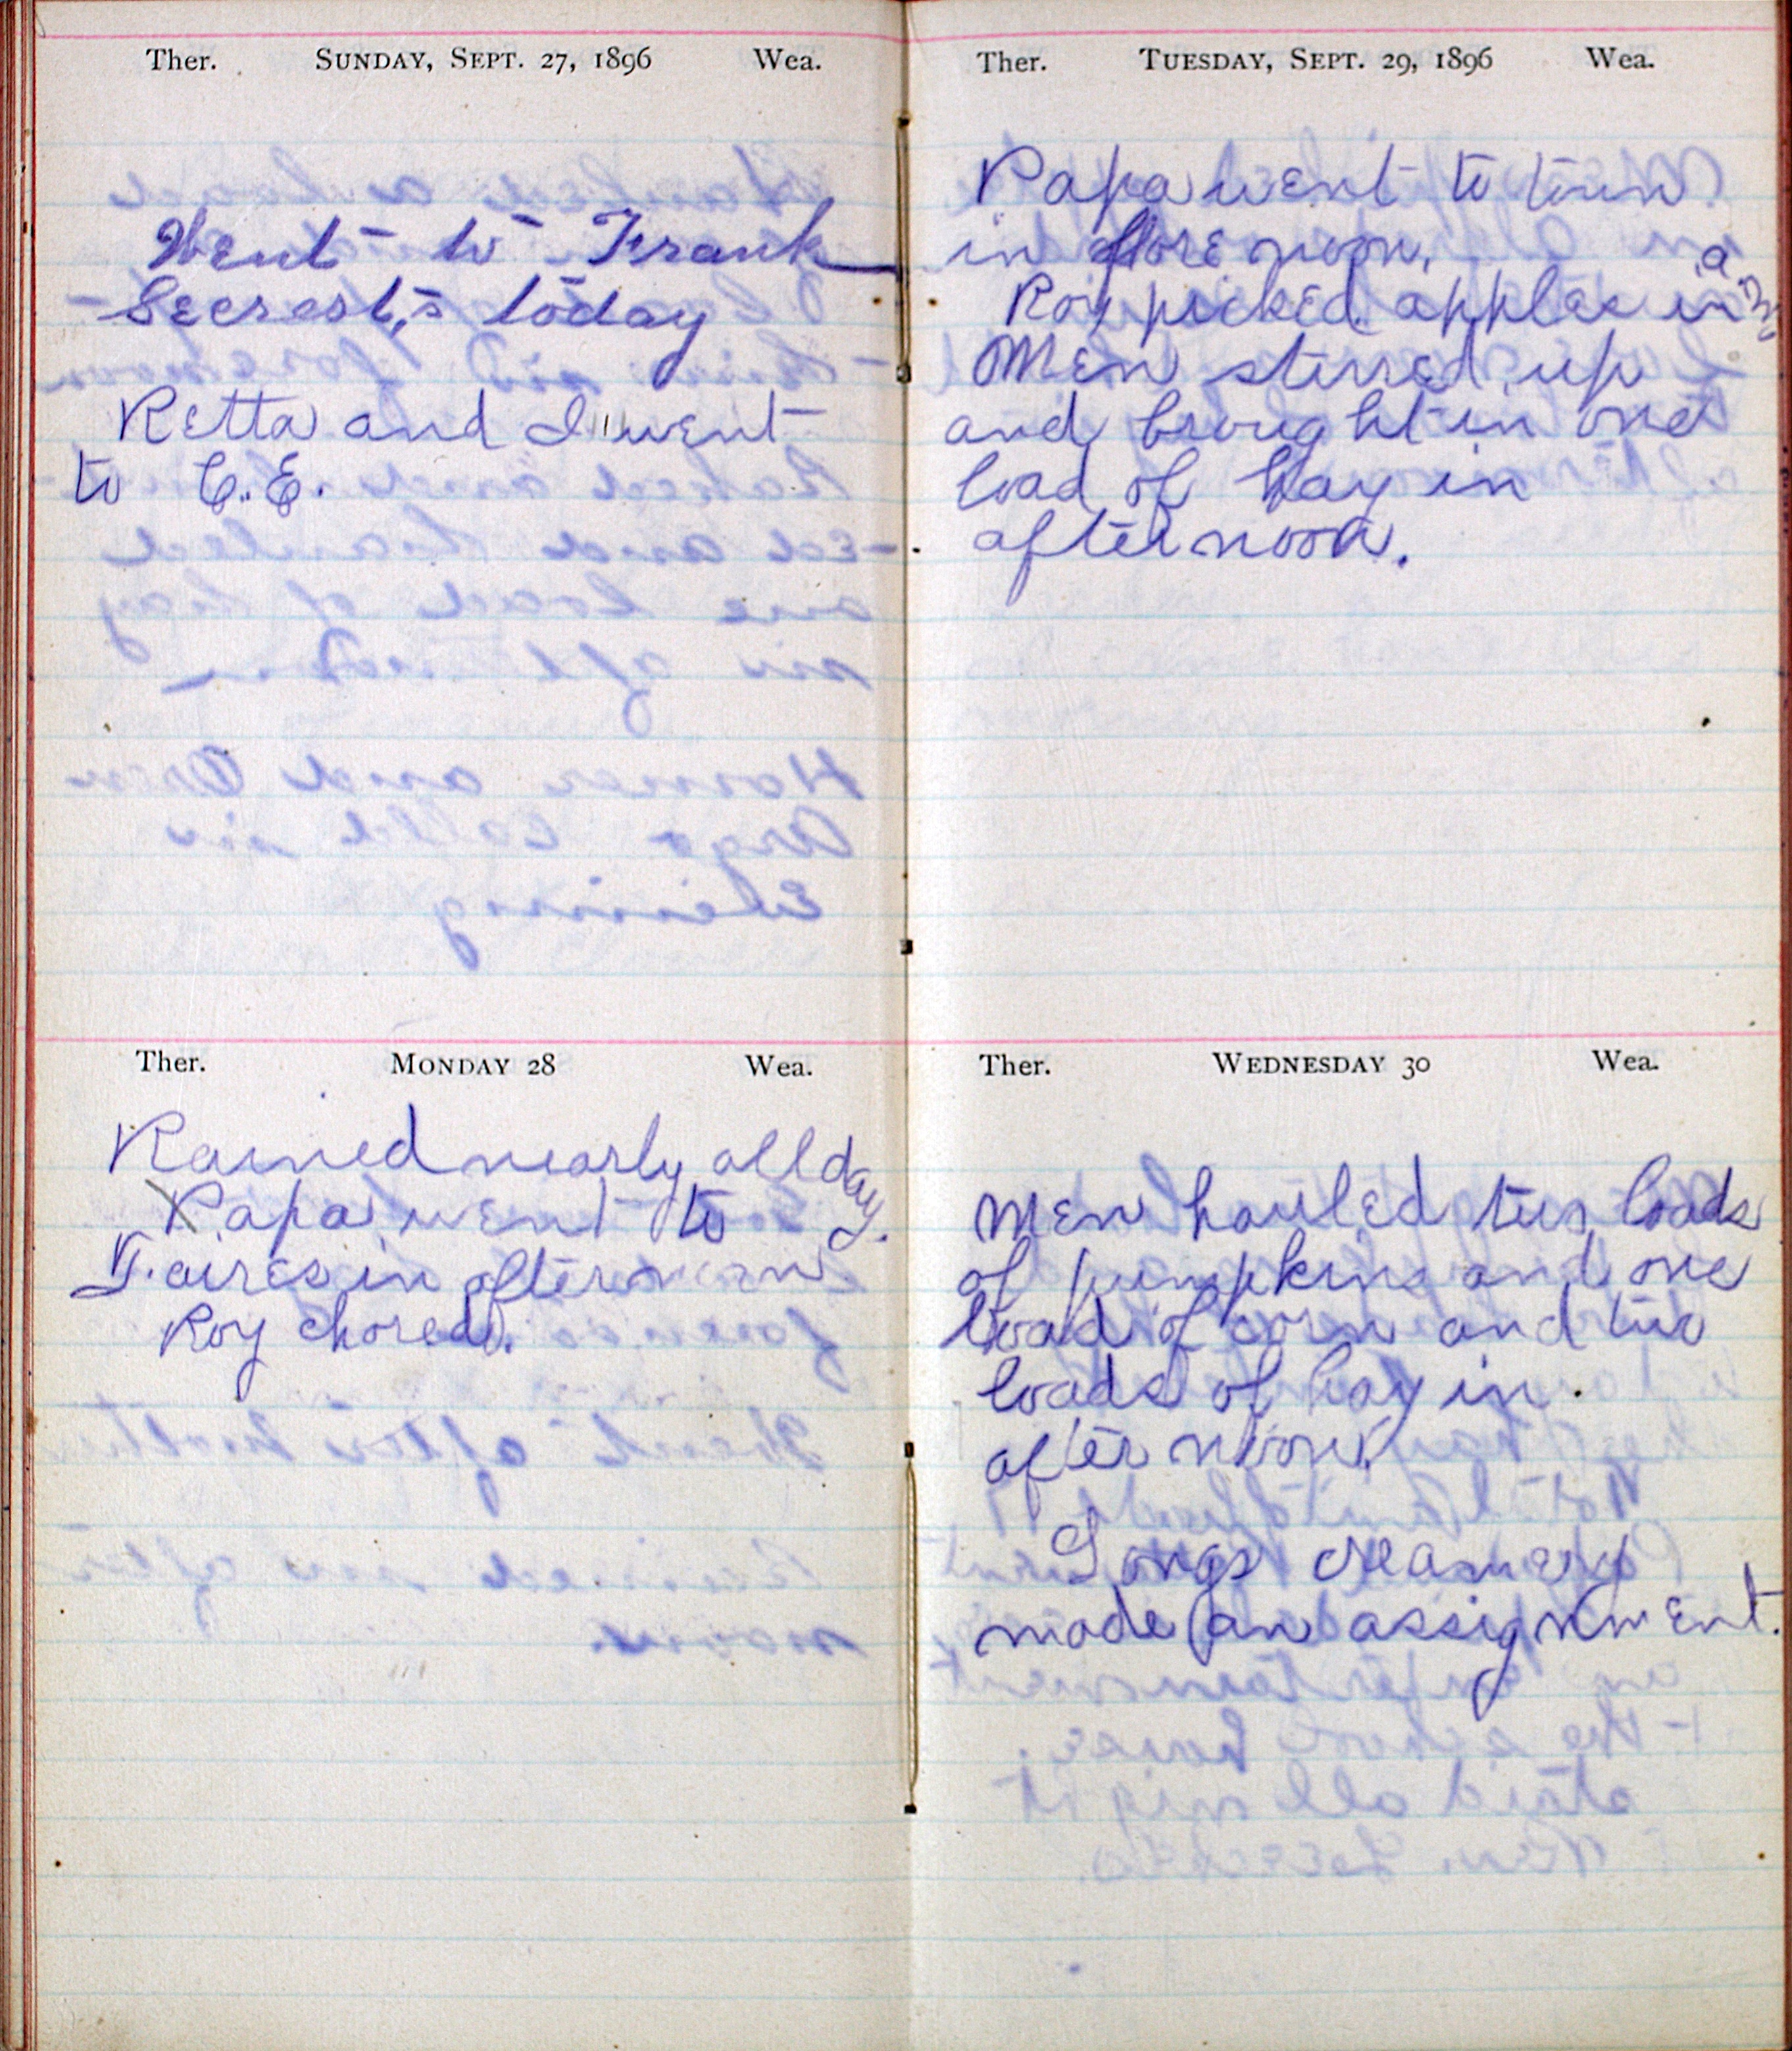 Ther. SUNDAY, SEPT. 27, 1896 Wea.
Went to Frank
Secrest,s today
Retta and I went
to C.E.
Ther. MONDAY 28 Wea.
Rained nearly all day.
Papa went to
in afternoon
Roy chored.
Ther. TUESDAY, SEPT. 29, 1896 Wea.
Papa went to town
in forenoon.
Roy picked apples in a.m.
Men stirred up
and brought in one
load of hay in
afternoon.
Ther. WEDNESDAY 30 Wea.
Men hauled two loads
of pumpkins and one
load of corn and two
loads of hay in
afternoon.
Longs creamery
made an assignment.